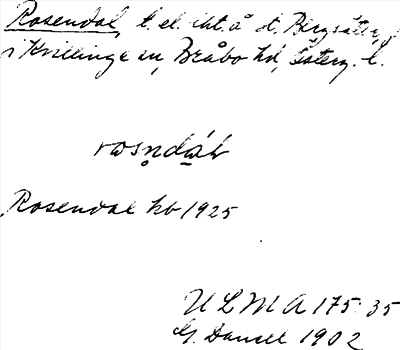 Rosendal, t. el. lht. å st. Bergsäter,
i Kvillinge sn, Bråbo hd, Österg. l.
rosndál
Rosendal kb 1925
ULMA 175:35
G. Danell 1902